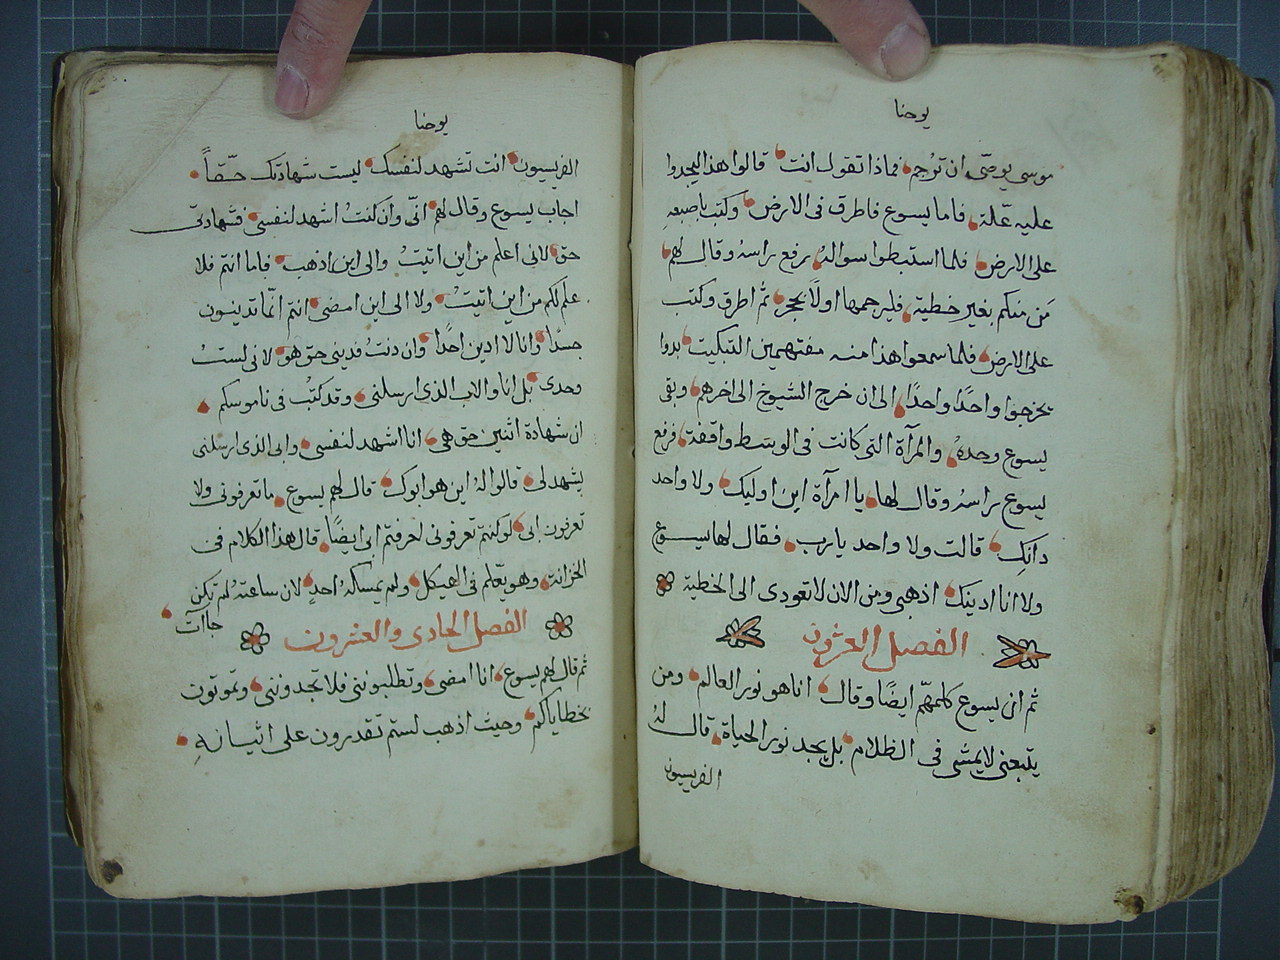 يوحنا
موسى يوصّى ان تُرجم فماذا تقول انت قالوا هذا ليجدوا
عليه عّلة فاما يسوع فاطرق فى الارض وكتب باصبعهِ
على الارض فلما استبطوا سوالهُ رفع راسهُ وقال لهم
مَن منكم بغير خطية فليرجمها اولًا بحجر ثم اطرق وكتب
على الارض فلما سمعوا هذا منه مفتهمين التبكيت بدوا
يخرجوا واحدًا واحدًا الى ان خرج الشيوخ الى اخرهم وبقى
يسوع وحدهُ والمرآة التى كانت فى الوسط واقفة فرفع
يسوع راسهُ وقال لها يا امرآة اين اوليك ولا واحد
دانكِ قالت ولا واحد يارب فقال لها يسوع
ولا انا ادينك اذهبى ومن الان لا تعودى الى الخطية
الفصل العشرون
ثم ان يسوع كلمهّم ايضًا وقال انا هو نور العالم ومن
يتبعنى لا يمشى فى الظلام بل يجد نور الحياة قال لهُ
الفريسيون
يوحنا
الفريسيون انت تشهد لنفسك ليست شهادتك حّقاً
اجاب يسوع وقال لهم انّى وان كنتُ اشهد لنفسى فشهادتى
حق لانى اعلم من اين اتيتُ والى اين اذهب فاما انتم فلا
علم لكم من اين اتيتُ ولا الى اين امضى انتم انّما تدينون
جسدًا وانا لا ادين احدًا وان دنتُ فدينى حق هو لانى لستُ
وحدى بل انا والاب الذى ارسلنى وقد كتبُ فى ناموسكم
ان شهادة اثنين حق هى انا اشهد لنفسى وابى الذى ارسلنى
يشهد لى قالوا لهُ اين هو ابوك قال لهم يسوع ما تعرفونى ولا
تعرفون ابى لو كنتم تعرفونى لعرفتم ابى ايضًا قال هذا الكلام فى
الخزانة وهو يعّلم فى الهيكل ولم يمسكهُ احدٍ لان ساعتهُ لم تكن
جاآت
الفصل الحادى والعشرون
ثم قال لهم يسوع انا امضى وتطلبوننى فلا تجدوننى وتموتون
بخطاياكم وحيث اذهب لستم تقدرون على اتيانهِ